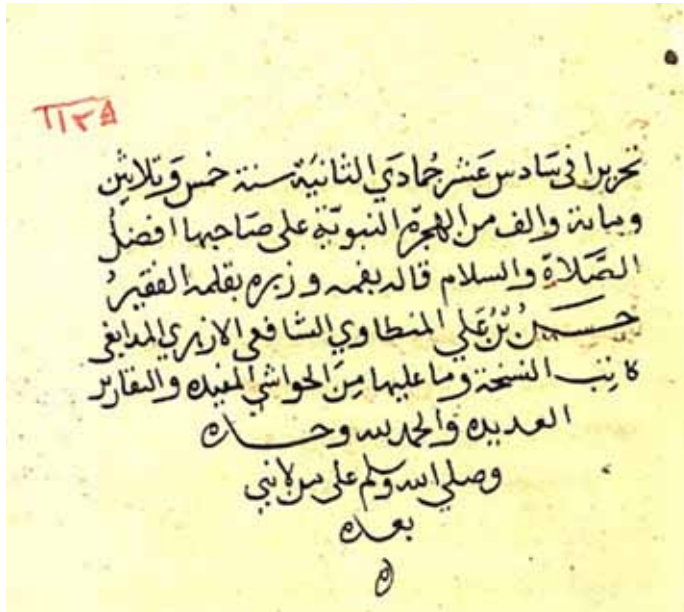 ١١٣٥
تحريرا في سادس عشر جُمادَي الثانيَة سنة خمس وَثلاثين
ومائة والف من الهجرة النبويّة على صَاحبها افضلُ
الصَّلاة والسلام قاله بفمه وزبره بقلمه الفقيرُ
حسَنُ بْنُ عَلي المنطاوي الشافعي الازهري المدابغي
كاتب النسخة وما عليها مِنَ الحواشي المفيده والتقارير
العديده والحمد لله وحده
وصلي الله وسلم على من لا نبي
بعده